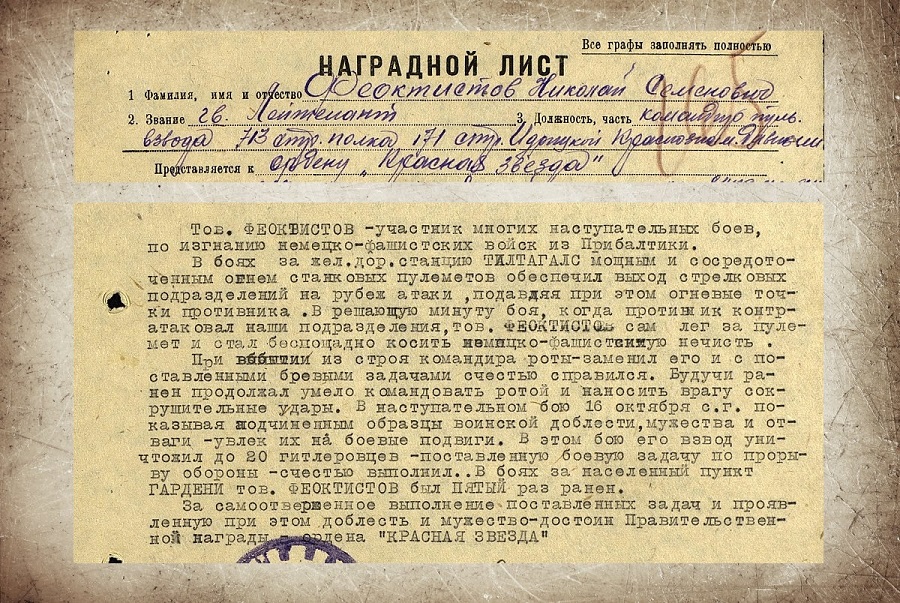 Все графы заполнять полностью
НАГРАДНОЙ ЛИСТ
1 Фамилия, имя и отчество Феоктистов Николай Семенович
2. Звание гв. Лейтенант 3. Должность, часть командир пуль.
взвода 713 стр. полка 171 стр. Идрицкой Краснознам. дивизии
Представляется к ордену „Красная Звезда"
Тов. ФЕОКТИСТОВ -участник многих наступательных боев,
по изгнанию немецко-фашистских войск из Прибалтики.
В боях за жел.дор.станцию ТИЛТАГАЛС мощным и сосредото-
ченным огнем станковых пулеметов обеспечил выход стрелковых
подразделений на рубеж атаки ,подавляя при этом огневые точ-
ки противника .В решающую минуту боя, когда противник контр-
атаковал наши подразделения,тов. ФЕОКТИСТОВ сам лег за пуле-
мет и стал беспощадно косить немецко-фашистскую нечисть .
При из строя командира роты-заменил его и с по-
ставленными боевыми задачами счестью справился. Будучи ра-
нен продолжал умело командовать ротой и наносить врагу сок-
рушительные удары. В наступательном бою 16 октября с.г. по-
казывая подчиненным образцы воинской доблести,мужества и от-
ваги -увлек их на боевые подвиги. В этом бою его взвод уни-
чтожил до 20 гитлеровцев -поставленную боевую задачу по проры-
ву обороны -счестью выполнил..В боях за населенный пункт
ГАРДЕНИ тов. ФЕОКТИСТОВ был ПЯТЫЙ раз ранен.
За самоотверженное выполнение поставленных задач и прояв-
ленную при этом доблесть и мужество-достоин Правительствен-
ной награды - ордена "КРАСНАЯ ЗВЕЗДА"